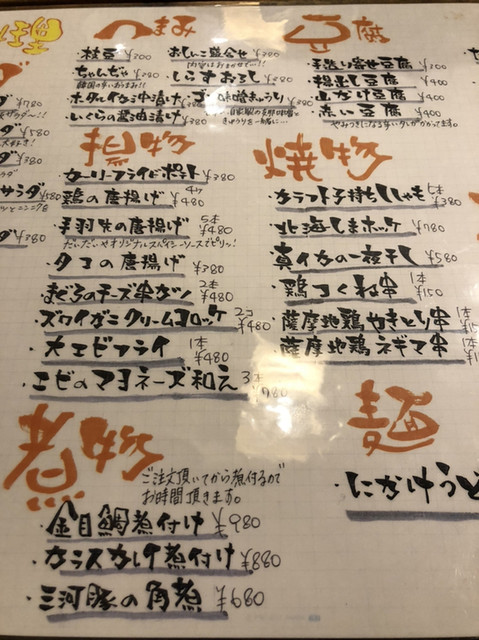 つまみ
・枝豆 ¥200
ちゃんぢゃ ¥380
韓国の辛いおつまみ!!
・ホタルイカ沖漬け
・いくらの醤油漬け
おしんこ盛合せ ¥380
内容はおまかせで…!!
しらすおろし ¥380
豆腐
・手造り寄せ豆腐 ¥300
・揚出し豆腐 ¥400
・山かけ豆腐 ¥400
・赤い豆腐 ¥400
やみつきになる辛いタレがかかってます。
¥780
ダ ¥580
ダ ¥380
サラダ ¥580
ダ ¥380
揚物
カーリーフライドポテト ¥380
鶏の唐揚げ 4ケ ¥480
・手羽先の唐揚げ 5本 ¥480
だいだいやオリジナルスパイシーソースでピリッ!
・タコの唐揚げ ¥380
・まぐろのチーズ串カツ 2本 ¥480
・ズワイガニクリームコロッケ 2コ ¥480
・大エビフライ 1本 ¥480
・エビのマヨネーズ和え 3本 ¥780
焼物
・カラフト子持ちししゃも 5本 ¥380
・北海しまホッケ ¥780
・真イカの一夜干し ¥580
・鶏つくね串 1本 ¥150
・薩摩地鶏やきとり串 1本
・薩摩地鶏ネギマ串 1本
煮物
ご注文頂いてから煮付るので
お時間頂きます。
・金目鯛煮付け ¥980
・カラスカレイ煮付け ¥880
・三河豚の角煮 ¥680
麺
・にかけうど